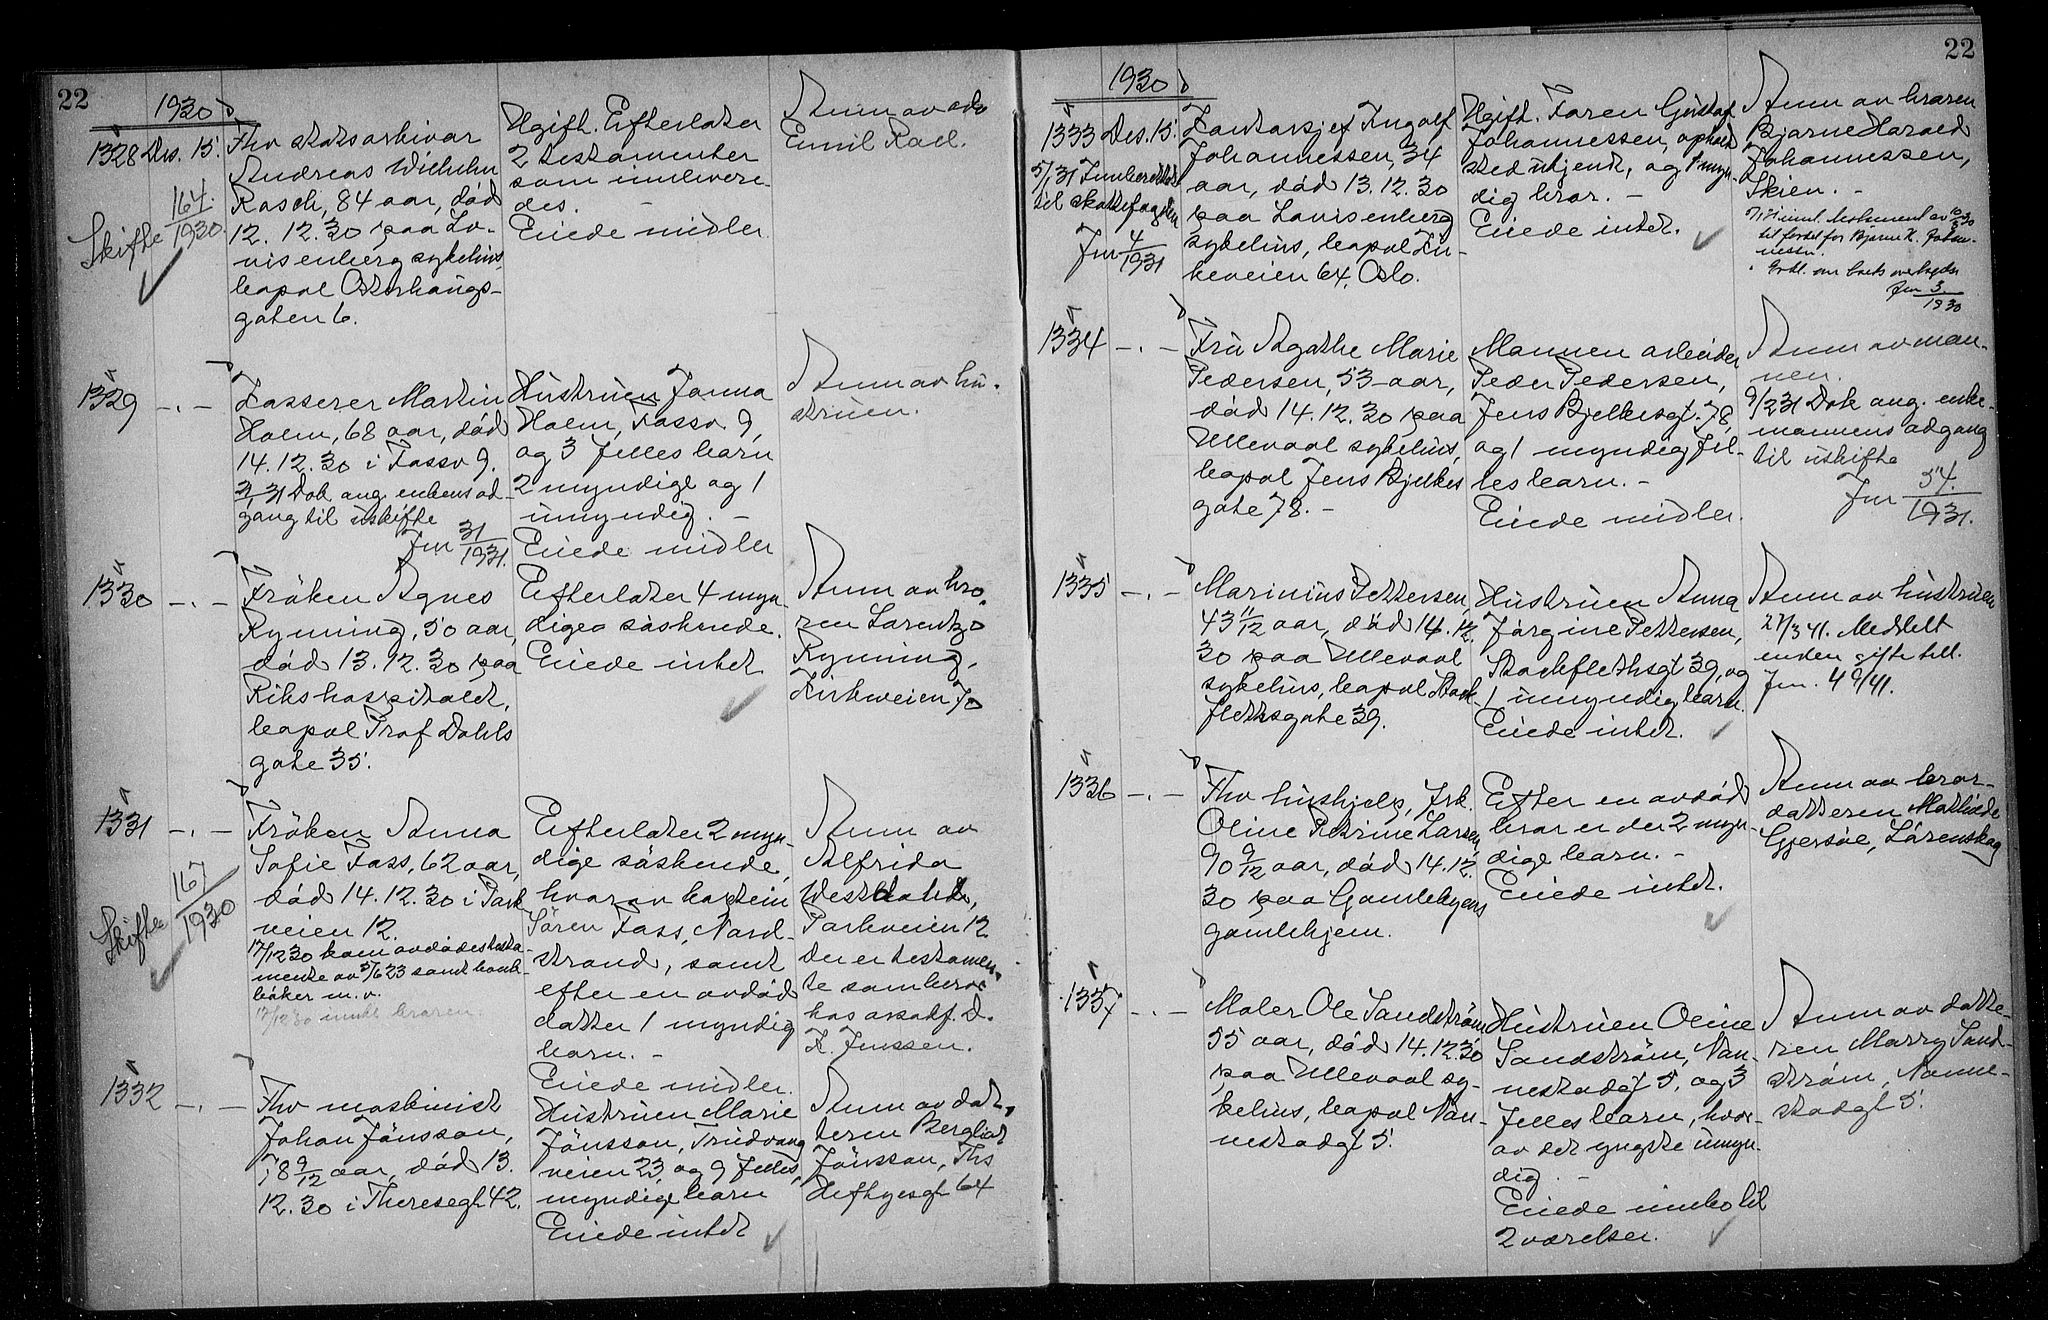 22
1930
1328 Des. 15.
Skifte 164/1930.
Fhv statsarkivar
Andreas Wilhelm
Rasch, 84 aar, död
12.12.30 paa Lo-
visenberg sykehus,
bopæl Osterhaugs-
gaten 6.
Ugift. Efterlater
2 testamenter
som innlevere-
des. –
Eiede midler.
Anm av adv
Emil Rad.
1329 –.–
Kasserer Martin
Holm, 68 aar, död
14.12.30 i Fossv 9.
31 Dok ang. enkens ad-
gang til uskifte
Jnr 31/1931.
Hustruen Janna
Holm, Fossv. 9,
og 3 felles barn
2 myndige og 1
umyndig. –
Eiede midler
Anm av hu-
struen.
1330 –.–
Fröken Agnes
Rynning, 50 aar,
död 13.12.30 paa
Rikshospitalet,
bopæl Prof Dahls
gate 35.
Efterlater 4 myn-
dige söskende.
Eiede intet
Anm av bro-
ren Larentz
Rynning,
Kirkeveien 70
1331 –.–
Skifte 167/1930
Fröken Anna
Sofie Fass, 62 aar,
död 14.12.30 i Park
veien 12.
17/12 30 kom avdödes testa-
mente av 5/6 23 samt bank-
böker m.v.
17/12 30 broren.
Efterlater 2 myn-
dige söskende,
hvorav kaptein
Sören Fass, Nord-
strand, samt
efter en avdöd
datter 1 myndig
barn. –
Eiede midler.
Anm av
Alfrida
Westdahl,
Parkveien 12
Der er testamen-
te som beror
hos D.
F. Jenssen.
1332 –.–
Fhv maskinist
Johan Jönsson,
78 9/12 aar, död 13.
12.30 i Theresegt 42.
Hustruen Marie
Jönsson, Trudvang
veien 23, og 9 felles,
myndige barn
Eiede intet
Anm av dat-
teren Bergliot
Jönsson, Ths
Heftyesgt 64
22
1930
1333 Des. 15.
5/1 31 Innberettet
til skattefogden
Jnr 4/1931
Kontorsjef Ingolf
Johannessen, 34
aar, död 13.12.30
paa Lovisenberg
sykehus, bopæl Kir-
keveien 64, Oslo.
Ugift. Faren Gustaf
Johannessen, opholds
sted ukjent, og 1 myn-
dig bror. –
Eiede intet.
Anm av broren
Bjarne Harald
Johannessen,
Skien. –
til fordel for Bjarne H. Johan-
nessen.
Jnr 3/1930
1334 –.–
Fru Agathe Marie
Pedersen, 53 aar,
död 14.12.30 paa
Ullevaal sykehus,
bopæl Jens Bjelkes
gate 78. –
Mannen arbeider
Peder Pedersen,
Jens Bjelkesgt. 78,
og 1 myndig fel-
les barn. –
Eiede midler.
Anm av man-
nen.
9/2 31 Dok ang. enke-
mannens adgang
til uskifte
Jnr 54/1931.
1335 –.–
Marinius Pettersen,
43 11/12 aar, död 14.12.
30 paa Ullevaal
sykehus, bopæl Stock-
flethsgate 39.
Hustruen Anna
Jörgine Pettersen,
Stockflethsgt 39, og
1 umyndig barn.
Eiede intet.
Anm av hustruen
27/3 41. Meddelt
enken gifte till.
Jnr. 49/41.
1336 –.–
Fhv hushjelp, frk.
Oline Petrine Larsen,
90 9/12 aar, död 14.12.
30 paa Gamlebyens
gamlehjem.
Efter en avdöd
bror er der 2 myn-
dige barn. –
Eiede intet.
Anm av bror-
datteren Mathilde
Gjersöe, Lörenskog
1337 –.–
Maler Ole Sandström
55 aar, död 14.12.30
paa Ullevaal sy-
kehus, bopæl Nan-
nestadgt 5.
Hustruen Oline
Sandström, Nan-
nestadgt 5, og 3
felles barn, hvor-
av det yngste umyn-
dig. –
Eiede innbo til
2 værelser.
Anm av datte-
ren Marry Sand-
ström, Nanne-
stadgt 5.